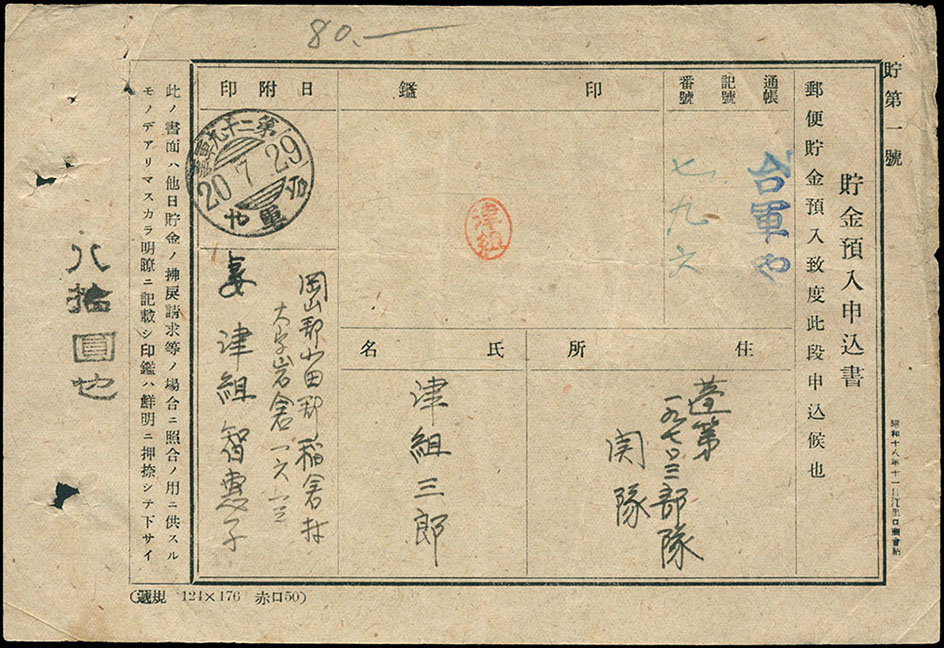 80.—
貯第一號
貯金預入申込書
郵便貯金預入致度此段申込候也
通帳
記號
番號
台軍や
七九六
印鑑
津組
日附印
20.7.29
軍や
住所
臺第
一九七〇三部隊
関隊
氏名
津組三郎
岡山郡小田郡稲倉村
大字岩倉一六一三
妻 津組智惠子
此ノ書面ハ他日貯金ノ拂戻請求等ノ場合ニ照合ノ用ニ供スル
モノデアリマスカラ明瞭ニ記載シ印鑑ハ鮮明ニ押捺シテ下サイ
八拾圓也
規 124×176 赤口50)